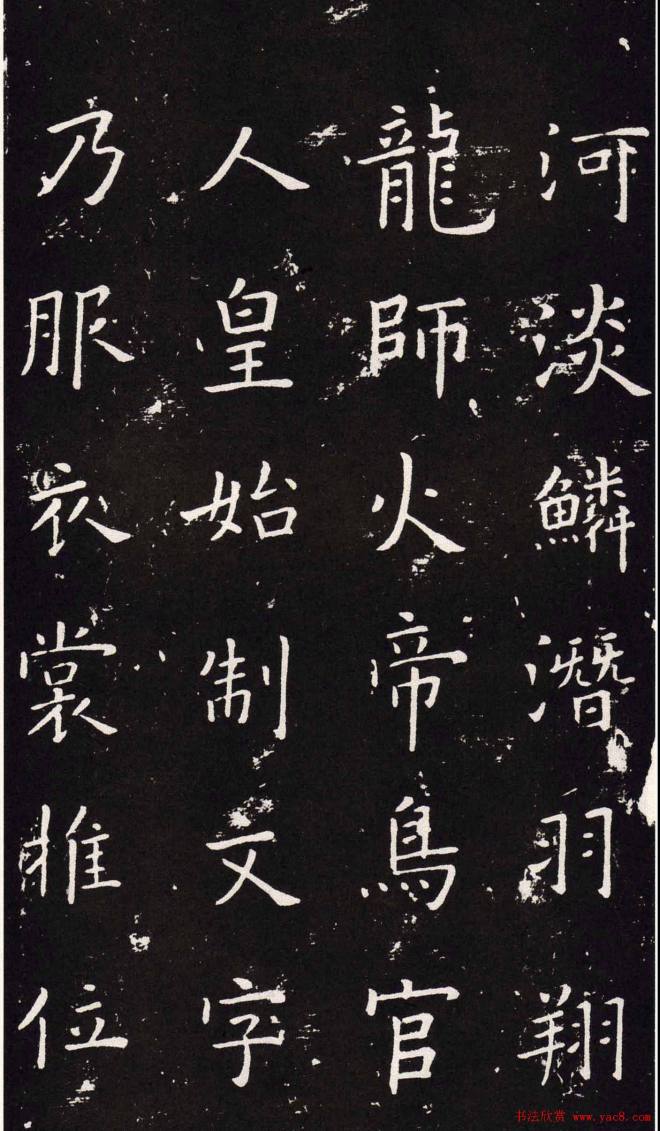 河淡鱗潛羽翔
龍師火帝鳥官
人皇始制文字
乃服衣裳推位
书法欣赏 www.yac8.com